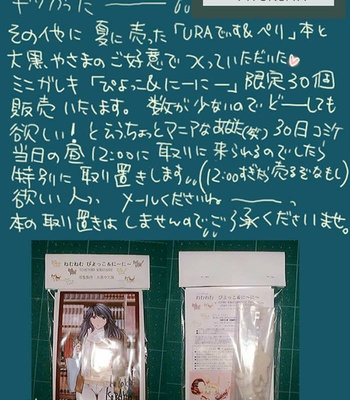 その他に 夏に売った「URAでぃす&ぺり」本と
大黒やさまのご好意で つっていただいた♥
ミニガレキ「ぴよっこ&にーにー」限定30個
販売いたします。数が少ないので どーしても
欲しい!とゆうちょっとマニアなあなた(笑) 30日コミケ
当日の昼12:00に取りに来られるのでしたら
特別に取り置きします。(12:00すぎたら売るぞなもし)
欲しい人っ メールくださいねーっ
本の取り置きは しませんのでご了承くださいませ。
ねむねむ ぴよっこ&にーにー
ねむねむ ぴよっこ&にーにー